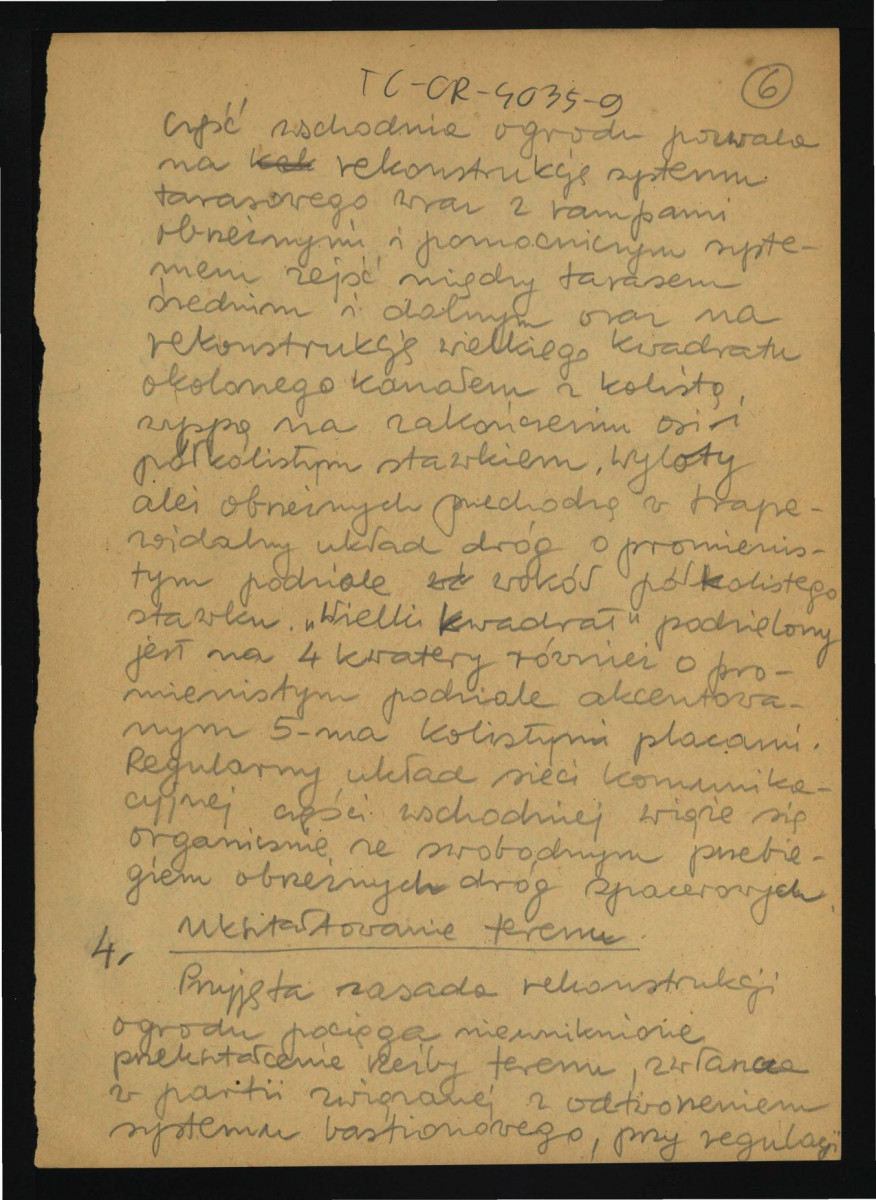 TC-CR-4035-9
6
część wschodnia ogrodu pozwala
na rekonstrukcję systemu
tarasowego wraz z rampami
obrzeżnymi i pomocniczym syste-
mem zejść między tarasem
średnim i dolnym oraz na
rekonstrukcję wielkiego kwadratu
okolonego kanałem z kolistą
wyspą na zakończeniu osi i
półkolistym stawkiem, wyloty
alei obrzeżnych przechodzą w trape-
zoidalny układ dróg o promienis-
tym podziale wokół półkolistego
stawku. „Wielki kwadrat" podzielony
jest na 4 kwatery również o pro-
mienistym podziale akcentowa-
nym 5-ma kolistymi placami.
Regularny układ sieci komunika-
cyjnej części wschodniej wiąże się
organicznie ze swobodnym przebie-
giem obrzeżnych dróg spacerowych.
4. Ukształtowanie terenu
Przyjęta zasada rekonstrukcji
ogrodu pociąga nieuniknione
przekształcenie rzeźby terenu, zwłaszcza
w partii związanej z odtworzeniem
systemu bastionowego, przy regulacji